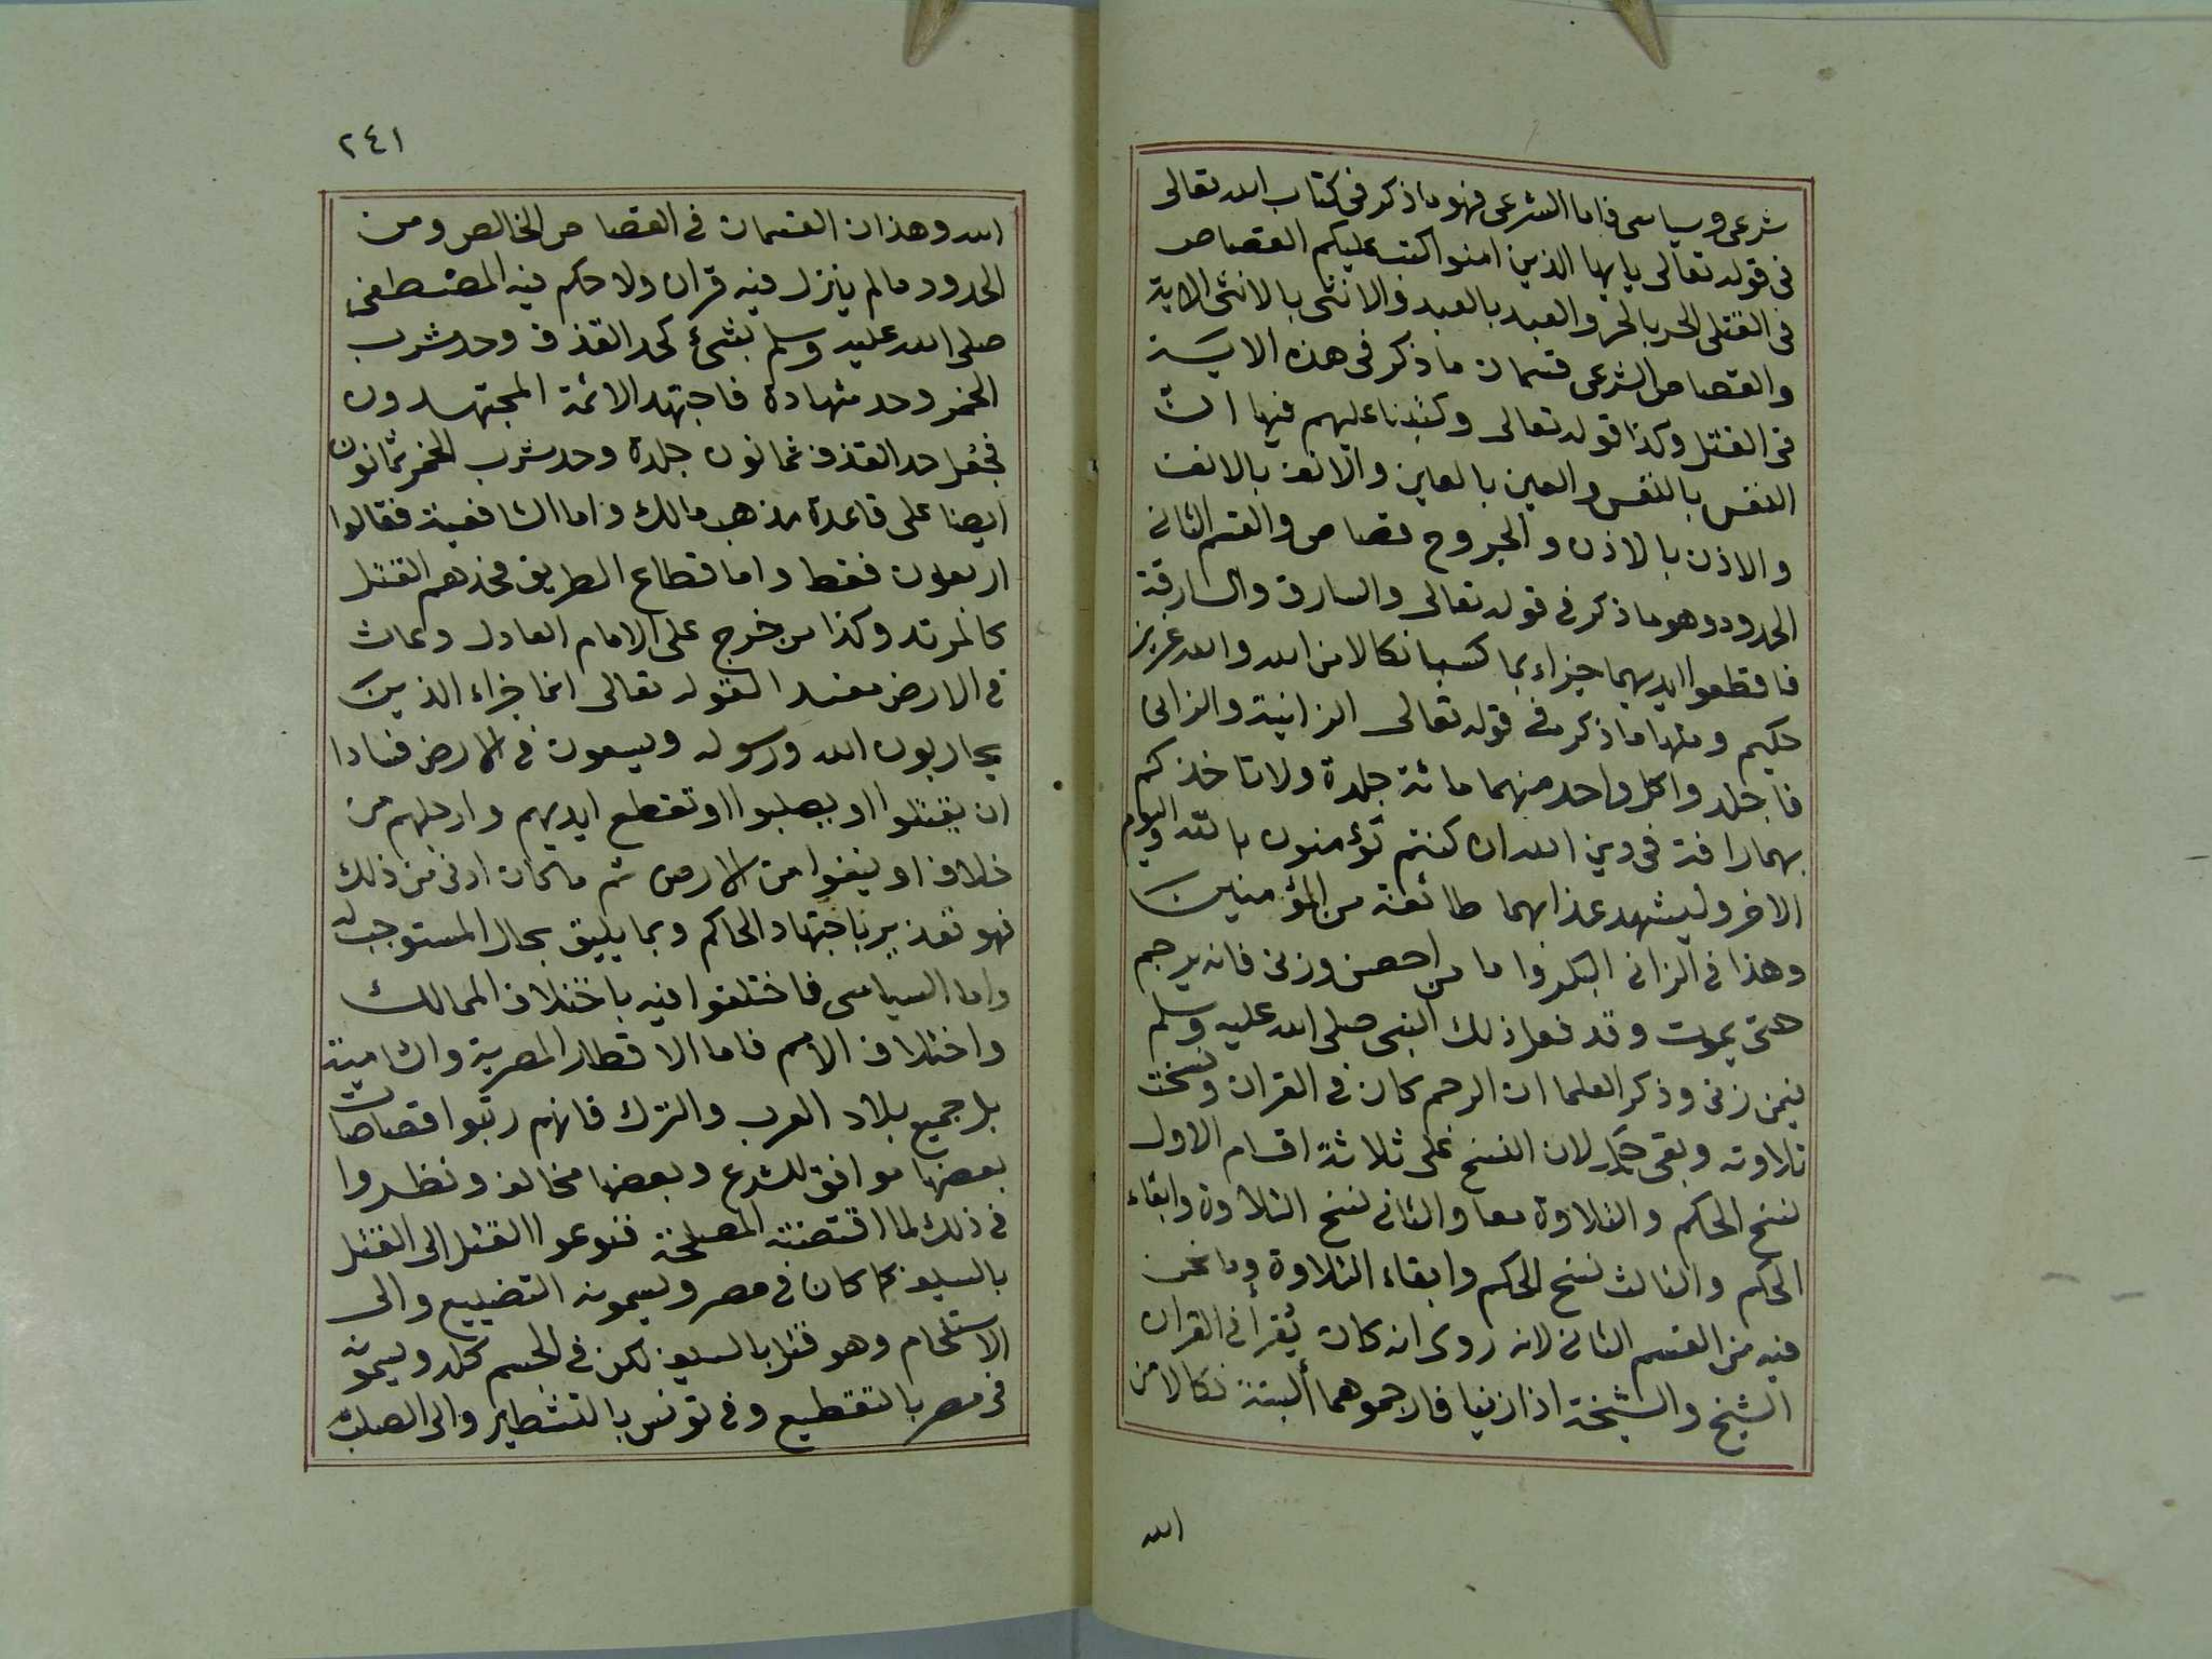 شرعى وسياسى فاما الشرعى فهو ما ذكر فى كتاب الله تعالى
فى قوله تعالى يايها الذين امنوا كتب عليكم القصاص
فى القتلى الحر بالحر والعبد بالعبد والانثى بالانثى الاية
والقصاص الشرعى قسمان ما ذكر فى هذه الاية
فى القتل وكذا قوله تعالى وكتبنا عليهم فيها ان
النفس بالنفس والعين بالعين والانف بالانف
والاذن بالاذن والجروح قصاص والقسم الثانى
الحدود وهو ما ذكر فى قوله تعالى والسارق والسارقة
فاقطعوا ايديهما جزاء بما كسبا نكالا من الله والله عزيز
حكيم ومنها ما ذكر فى قوله تعالى الزانية والزانى
فاجلدوا كل واحد منهما مائة جلدة ولا تاخذكم
بهما رافة فى دين الله ان كنتم تؤمنون بالله واليوم
الاخر وليشهد عذابهما طائفة من المؤمنين
وهذا فى الزانى البكر واما من احصن وزنى فانه يرجم
حتى يموت وقد فعل ذلك النبى صلى الله عليه وسلم
فيمن زنى وذكر العلما ان الرجم كان فى القران ونسخت
تلاوته وبقى حكمه لان النسخ على ثلاثة اقسام الاول
نسخ الحكم والتلاوة معا والثانى نسخ التلاوة وابقاء
الحكم والثالث نسخ الحكم وابقاء التلاوة وما نحن
فيه من القسم الثانى لانه روى انه كان يقرأ فى القران
الشيخ والشيخة اذا زنيا فارجموهما ألبتة نكالا من
الله
٢٤١
الله وهذان القسمان فى القصاص الخالص ومن
الحدود ما لم ينزل فيه قران ولا حكم فيه المصطفى
صلى الله عليه وسلم بشىء كحد القذف وحد شرب
الخمر وحد شهادة فاجتهد الائمة المجتهدون
فجعل حد القذف ثمانون جلدة وحد شرب الخمر ثمانون
ايضا على قاعدة مذهب مالك واما الشافعية فقالوا
اربعون فقط واما قطاع الطريق فحدهم القتل
كالمرتد وكذا من خرج على الامام العادل وعاث
فى الارض مفسدا لقوله تعالى انما جزاء الذين
يحاربون الله ورسوله ويسعون فى الارض فسادا
ان يقتلوا او يصلبوا او تقطع ايديهم وارجلهم من
خلاف او ينفوا من الارض ثم ما كان ادنى من ذلك
فهو تعزير باجتهاد الحاكم وبما يليق بحال المستوجب له
واما السياسى فاختلفوا فيه باختلاف الممالك
واختلاف الامم فاما الاقطار المصرية والشامية
بل جميع بلاد العرب والترك فانهم رتبوا قصاصات
بعضها موافق للشرع وبعضها مخالف ونظروا
فى ذلك لما اقتضته المصلحة فنوعوا القتل الى القتل
بالسيف كما كان فى مصر ويسمونه التضييع والى
الاستلحام وهو قتل بالسيف لكن فى الجسم كله ويسمونه
فى مصر بالتقطيع وفى تونس بالتشطير والى الصلب